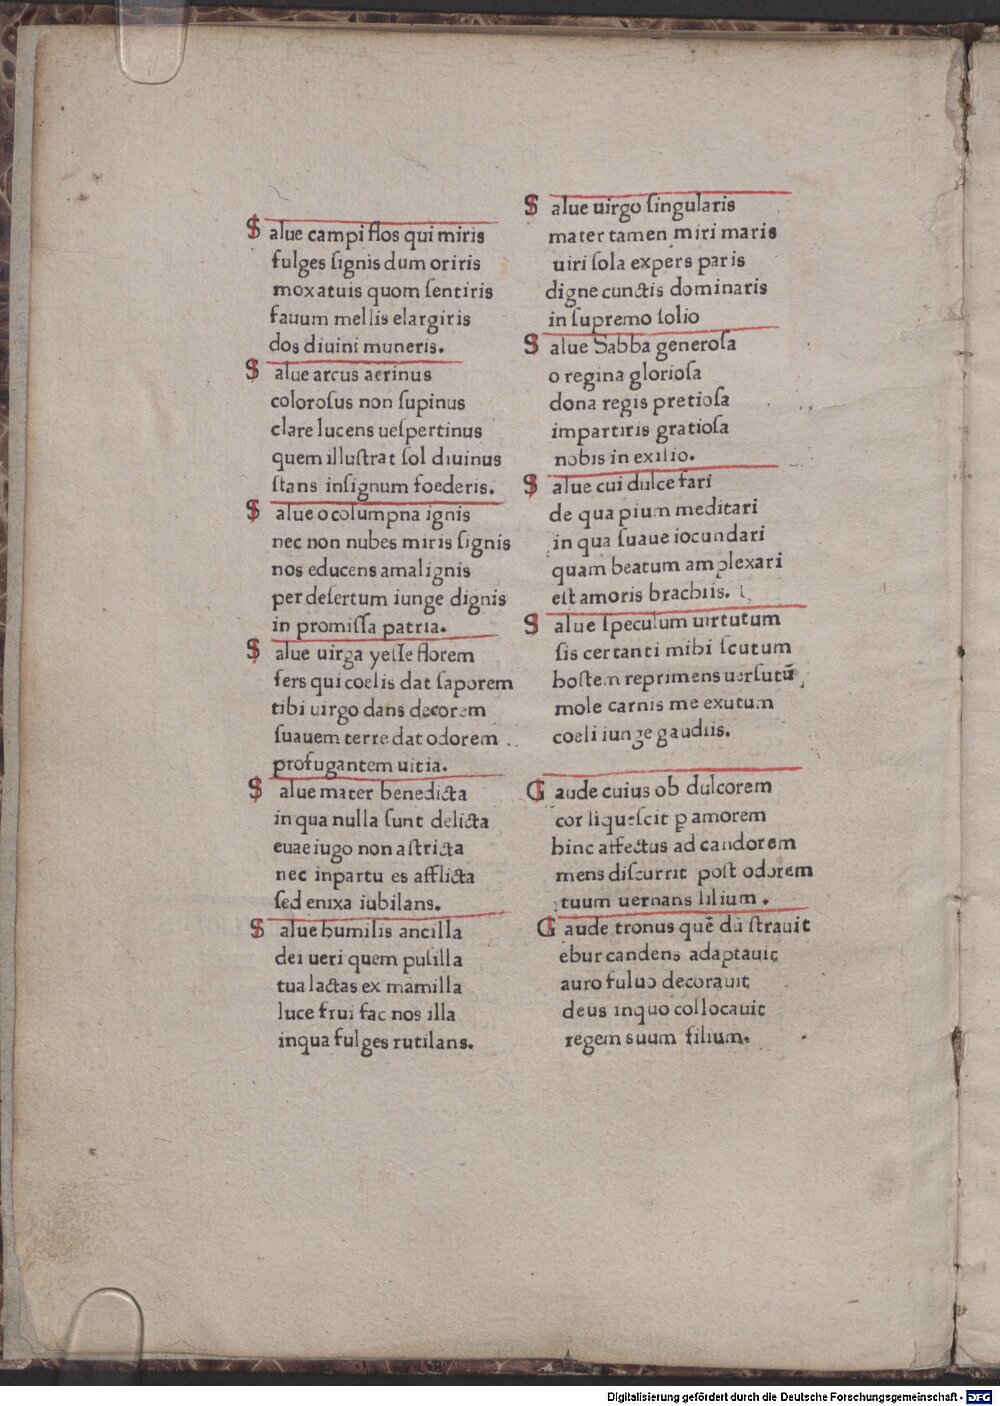 S alue campi flos qui miris
fulges ſignis dum oriris
mox atuis quom ſentiris
fauum mellis elargiris
dos diuini muneris.
S alue arcus aerinus
coloroſus non ſupinus
clare lucens ueſpertinus
quem illuſtrat ſol diuinus
ſtans inſignum foederis.
S alue o columpna ignis
nec non nubes miris ſignis
nos educens amalignis
per deſertum iunge dignis
in promiſſa patria.
S alue uirga yeſſe florem
fers qui coelis dat ſaporem
tibi uirgo dans decorem
ſuauem terre dat odorem
profugantem uitia.
S alue mater benedicta
in qua nulla ſunt delicta
euae iugo non aſtricta
nec inpartu es afflicta
ſed enixa iubilans.
S alue humilis ancilla
dei ueri quem puſilla
tua lactas ex mamilla
luce frui fac nos illa
inqua fulges rutilans.
S alue uirgo ſingularis
mater tamen miri maris
uiri ſola expers paris
digne cunctis dominaris
in ſupremo ſolio
S alue Sabba generoſa
o regina glorioſa
dona regis pretioſa
impartiris gratioſa
nobis in exilio.
S alue cui dulce fari
de qua pium meditari
in qua ſuaue iocundari
quam beatum amplexari
eſt amoris brachiis.
S alue ſpeculum uirtutum
ſis certanti mihi ſcutum
hoſtem reprimens uerſutū
mole carnis me exutum
coeli iunge gaudiis.
G aude cuius ob dulcorem
cor liqueſcit ꝑ amorem
hinc affectus ad candorem
mens diſcurrit poſt odorem
tuum uernans lilium.
G aude tronus quē dū ſtrauit
ebur candens adaptauit
auro fuluo decorauit
deus inquo collocauit
regem suum filium.
Digitalisierung gefördert durch die Deutsche Forschungsgemeinschaft - DFG